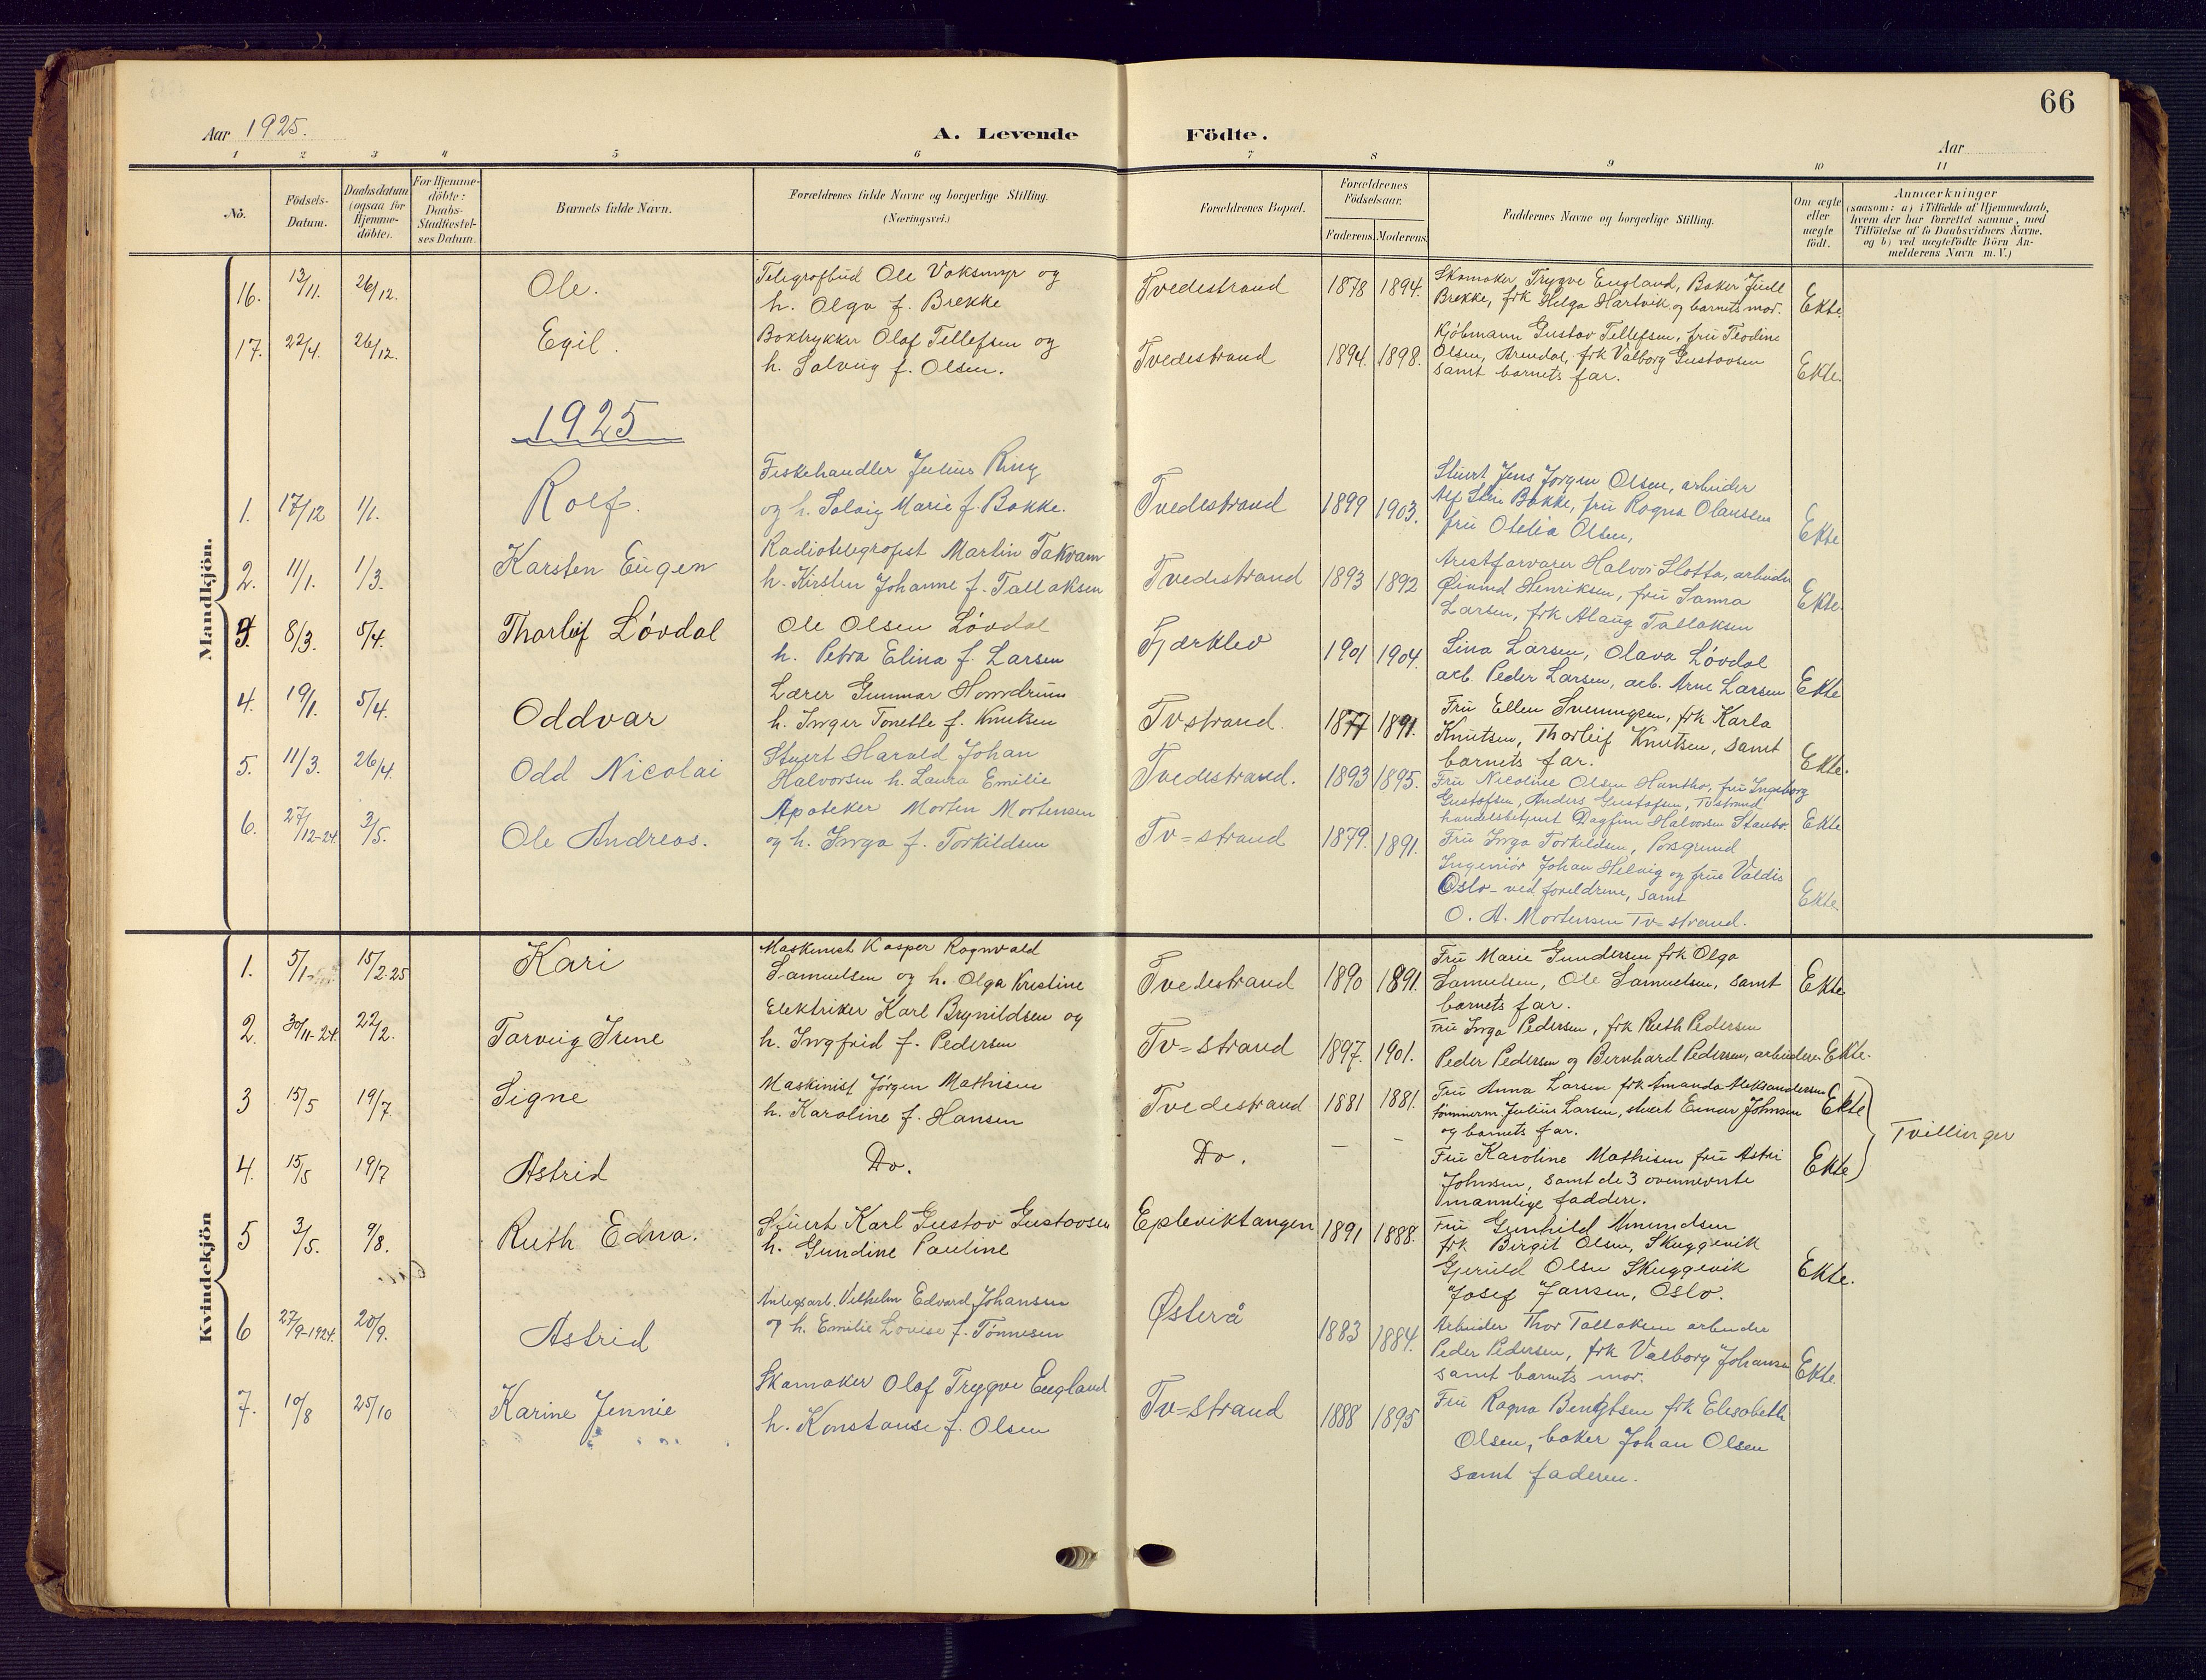 66
Aar 1925.
A. Levende Födte.
Aar
1 2 3 4 5 6 7 8 9 10 11
No.
Födsels-Datum.
Daabsdatum (ogsaa for Hjemme-döbte).
For Hjemme-döbte: Daabs-Stadfæstel-ses Datum.
Barnets fulde Navn.
Forældrenes fulde Navne og borgerlige Stilling. (Næringsvei.)
Forældrenes Bopæl.
Forældrenes Födselsaar.
Faderens Moderens
Faddernes Navne og borgerlige Stilling.
Om ægte eller uægte födt.
Anmærkninger
(saasom: a) i Tilfælde af Hjemmedaab,
hvem der har forrettet samme, med
Tilföielse af to Daabsvidners Navne.
og b) ved uægtefödte Börn An-
melderens Navn m. V.)
Mandkjön.
16. 13/11. 26/12. Ole.
Telegrafbud Ole Voksmyr og
h. Olga f. Brekke
Tvedestrand 1878 1894.
Skomaker Trygve Eugland, Baker Juell
Brekke, frk Helga Hartvik og barnets mor.
Ekte.
17. 22/4. 26/12. Egil.
Boktrykker Olaf Tellefsen og
h. Solveig f. Olsen.
Tvedestrand 1894. 1898.
Kjöbmann Gustav Tellefsen, fru Teodine
Olsen, Arendal, frk Valborg Gustavsen
samt barnets far.
Ekte.
1925
1. 17/12 1/1. Rolf.
Fiskehandler Julius Ring
og h. Solvig Marie f. Bakke.
Tvedestrand 1899 1903.
Stuert Jens Jorgen Olsen, arbeider
Alf Bakke, fru Ragna Olaussen
fru Otelia Olsen,
Ekte
2. 11/1. 1/3. Karsten Eugen
Radiotelegrafist Martin Takvam
h. Kirsten Johanne f. Tallaksen
Tvedestrand 1893 1892
Arestforvarer Halvor Slotta, arbeider
Øivind Henriksen, fru Sanna
Larsen, frk Alaug Tallaksen
Ekte.
3. 8/3. 5/4. Thorleif Lövdal
Ole Olsen Lövdal
h. Petra Elina f. Larsen
Fjærklev 1901 1904.
Lina Larsen, Olava Lövdal
arb. Peder Larsen, arb. Arne Larsen
Ekte
4. 19/1. 5/4. Oddvar
Lærer Gunnar Homdrum
h. Inger Tonette f. Knutsen
Tvstrand. 1877 1891.
Fru Ellen Svenungsen, frk Karla
Knutsen, Thorleif Knutsen, samt
barnets far.
Ekte.
5. 11/3. 26/4. Odd Nicolai
Stuert Harald Johan
Halvorsen h. Laura Emilie
Tvedestrand. 1893 1895.
Fru Nicoline Olsen Hantho, fru Ingeborg
Gustafsen, Anders Gustafsen, Tvstrand
handelsbetjent Dagfinn Halvorsen Staubø.
Ekte
6. 27/12-24. 3/5. Ole Andreas.
Apoteker Morten Mortensen
og h. Inga f. Torkildsen
Tv=strand 1879. 1891.
Fru Inga Torkildsen, Porsgrund
Ingeniör Johan Helvig og frue Valdis
Oslo - ved foreldrene, samt
O. A. Mortensen Tv=strand.
Ekte
Kvindekjön
1. 5/1- 15/2.25 Kari
Maskinist Kasper Ragnvald
Samuelsen og h. Olga Kristine
Tvedestrand 1890 1891.
Fru Marie Gundersen frk Olga
Samuelsen, Ole Samuelsen, samt
barnets far.
Ekte
2. 30/11-24. 22/2. Torveig Irene
Elektriker Karl Brynildsen og
h. Ingfrid f. Pedersen
Tv=strand 1897. 1901.
Fru Inga Pedersen, frk Ruth Pedersen
Peder Pedersen og Bernhard Pedersen, arbeidere
Ekte.
3 15/5 19/7 Signe
Maskinist Jörgen Mathisen
h. Karoline f. Hansen
Tvedestrand 1881 1881.
Fru Anna Larsen frk Amanda Aleksandersen
tömmerm. Julius Larsen, stuert Einar Johnsen
og barnets far.
Ekte
Tvillinger
4. 15/5 19/7 Astrid
Do. Do. — —
Fru Karoline Mathisen fru Astri
Johnsen, samt de 3 ovennevnte
mannlige faddere.
Ekte
5 3/5. 9/8. Ruth Edna.
Stuert Karl Gustav Gustavsen
h. Gundine Pauline
Epleviktangen 1891 1888.
Fru Gunhild Amundsen
frk Birgit Olsen, Skuggevik
Gjeruld Olsen Skuggevik
Josef Jansen, Oslo.
Ekte.
6 27/9-1924. 20/9. Astrid
Anlegsarb. Vilhelm Edvard Johansen
og h. Emilie Lovise f. Tönnesen
Østerå 1883 1884.
Arbeider Thor Tallaksen arbeider
Peder Pedersen, frk Valborg Johansen
samt barnets mor.
Ekte.
7. 10/8 25/10 Karine Jennie
Skomaker Olaf Trygve Eugland
h. Konstanse f. Olsen
Tv=strand 1888 1895
Fru Ragna Bengtsen frk Elisabeth
Olsen, baker Johan Olsen
samt faderen.